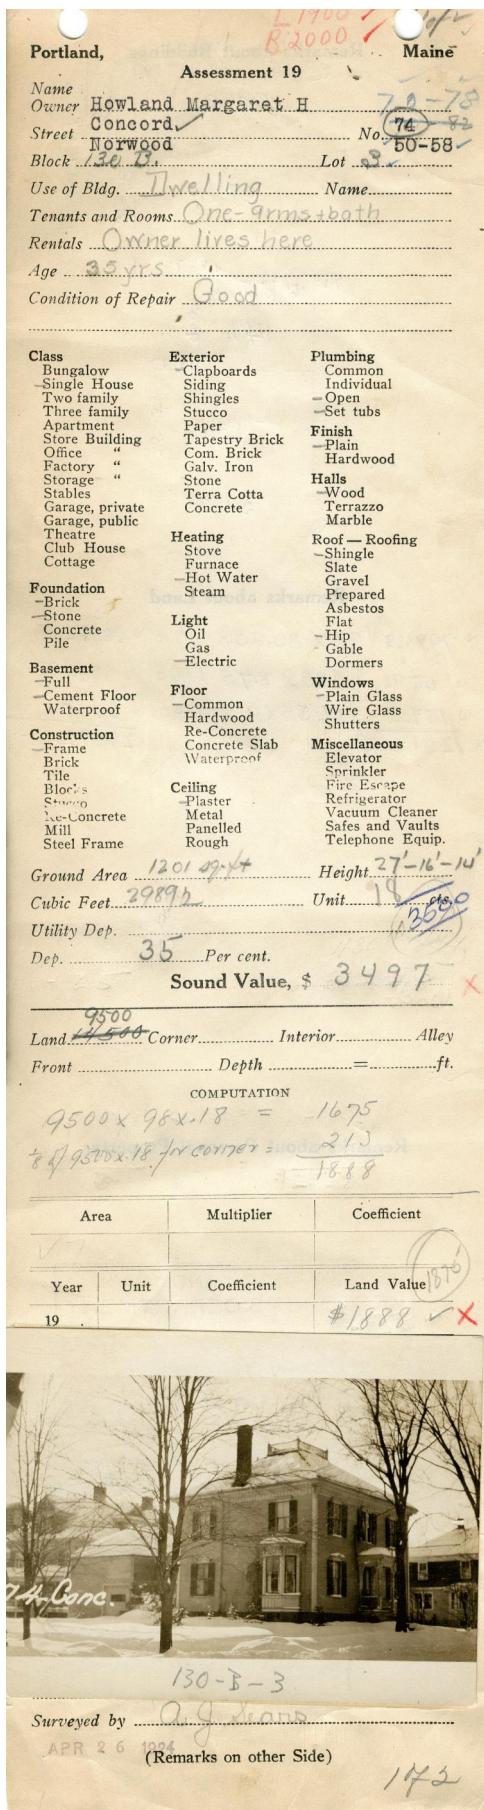 L 1900
B 2000
Portland, Maine
Assessment 19
Name
Owner Howland Margaret H 72-78
Street Concord No. 74
Norwood 50-58
Block 130 B. Lot 3.
Use of Bldg. Dwelling Name
Tenants and Rooms One-9rms+bath
Rentals Owner lives here
Age 35 yrs
Condition of Repair Good
Class
Bungalow
Single House
Two family
Three family
Apartment
Store Building
Office "
Factory "
Storage "
Stables
Garage, private
Garage, public
Theatre
Club House
Cottage
Foundation
Brick
Stone
Concrete
Pile
Basement
Full
Cement Floor
Waterproof
Construction
Frame
Brick
Tile
Blocks
Stucco
Re-Concrete
Mill
Steel Frame
Exterior
Clapboards
Siding
Shingles
Stucco
Paper
Tapestry Brick
Com. Brick
Galv. Iron
Stone
Terra Cotta
Concrete
Heating
Stove
Furnace
Hot Water
Steam
Light
Oil
Gas
Electric
Floor
Common
Hardwood
Re-Concrete
Concrete Slab
Waterproof
Ceiling
Plaster
Metal
Panelled
Rough
Plumbing
Common
Individual
Open
Set tubs
Finish
Plain
Hardwood
Halls
Wood
Terrazzo
Marble
Roof — Roofing
Shingle
Slate
Gravel
Prepared
Asbestos
Flat
Hip
Gable
Dormers
Windows
Plain Glass
Wire Glass
Shutters
Miscellaneous
Elevator
Sprinkler
Fire Escape
Refrigerator
Vacuum Cleaner
Safes and Vaults
Telephone Equip.
Ground Area 1201 sq.ft Height 27'-16'-14'
Cubic Feet 29892 Unit 18 cts.
Utility Dep.
Dep. 35 Per cent.
Sound Value, $ 3497 x
9500
Land 14500 Corner Interior Alley
Front Depth = ft.
COMPUTATION
9500 x 98 x .18 = 1675
1/8 of 9500 x .18 for corner = 213
1888
Area Multiplier Coefficient
1875
Year Unit Coefficient Land Value
19 . $1888 x
74 Conc.
130-B-3
Surveyed by A J Sears
APR 26 1924
(Remarks on other Side)
172